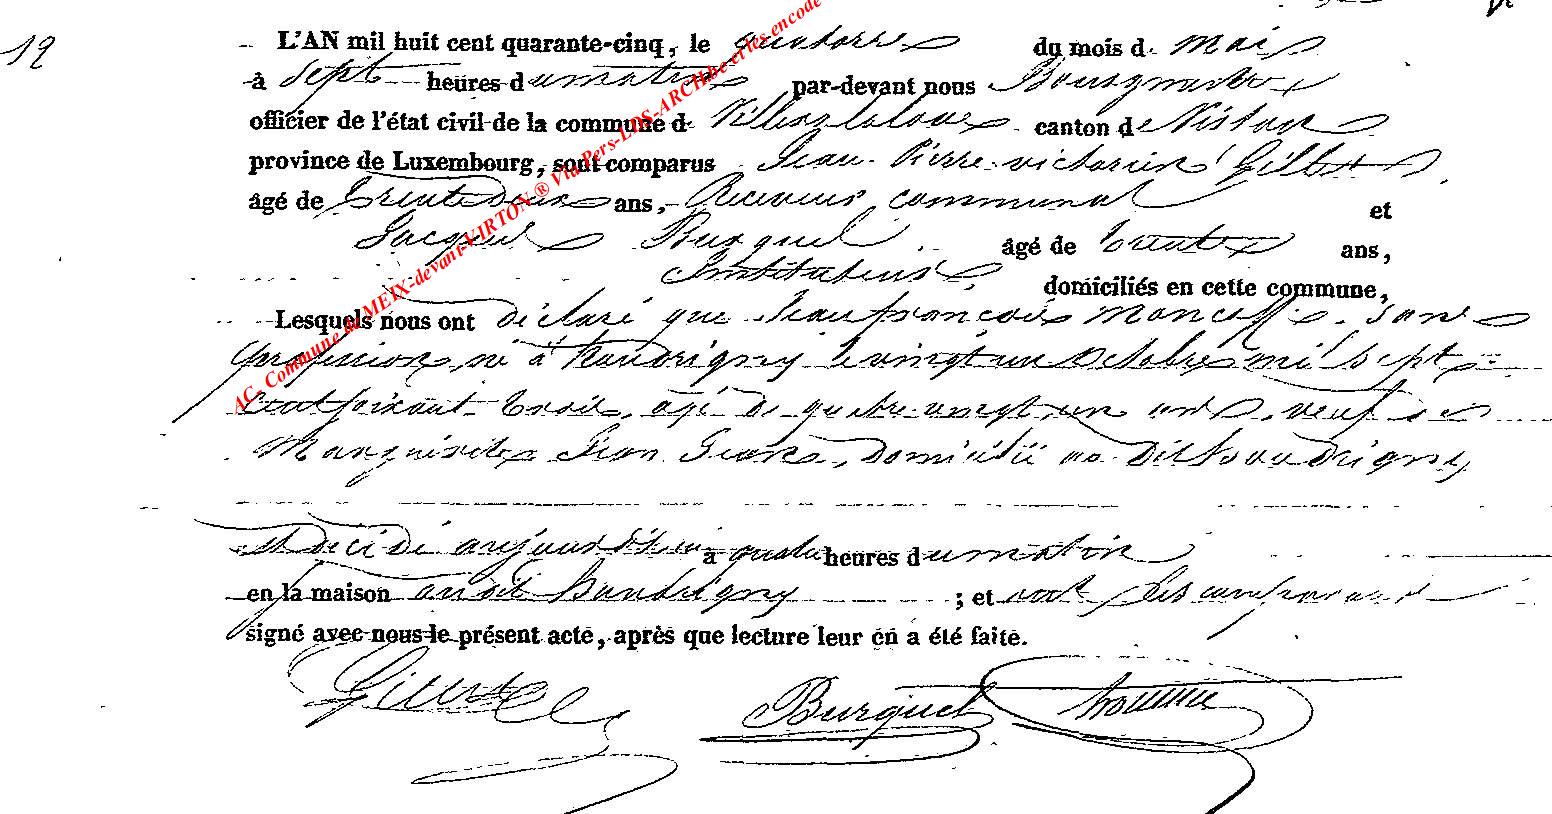 12
L'AN mil huit cent quarante-cinq, le quatorze du mois de Mai
à sept heures du matin par-devant nous Bourgmestre
officier de l'état civil de la commune de Villerslaloue canton de Virton
province de Luxembourg, sont comparus Jean Pierre victorien Gillet
âgé de trente deux ans, Receveur communal et
Jacques Burquel âgé de trente ans,
Instituteur domiciliés en cette commune,
Lesquels nous ont déclaré que Jean françois Moncoffe sans
profession, né à houdrigny le vingt un octobre mil sept
cent soixante trois, agé de quatre vingt un ans, veuf de
Marguerite Jean Jean, domicilié au dit houdrigny
est décédé aujourd'hui à quatre heures du matin
en la maison au dit houdrigny ; et ont les comparants
signé avec nous le présent acte, après que lecture leur en a été faite.
Burquel
AC. Commune de MEIX-devant-VIRTON ® Via Pers-LDS-ARCH.be et les encode